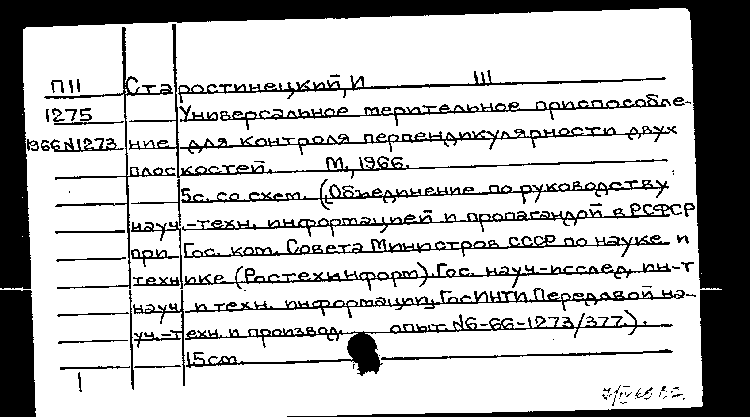 П11 Старостинецкий, И III
1275 Универсальное мерительное приспособле-
1966 N1273 ние для контроля перпендикулярности двух
плоскостей. М., 1966.
5с. со схем. (Объединение по руководству
науч.-техн. информацией и пропагандой в РСФСР
при Гос. ком. Совета Министров СССР по науке и
технике (Ростехинформ). Гос. науч-исслед. ин-т
науч. и техн. информации. ГосИНТИ. Передовой на-
уч.-техн. и производ. опыт. N6-66-1273/377.).
15см.